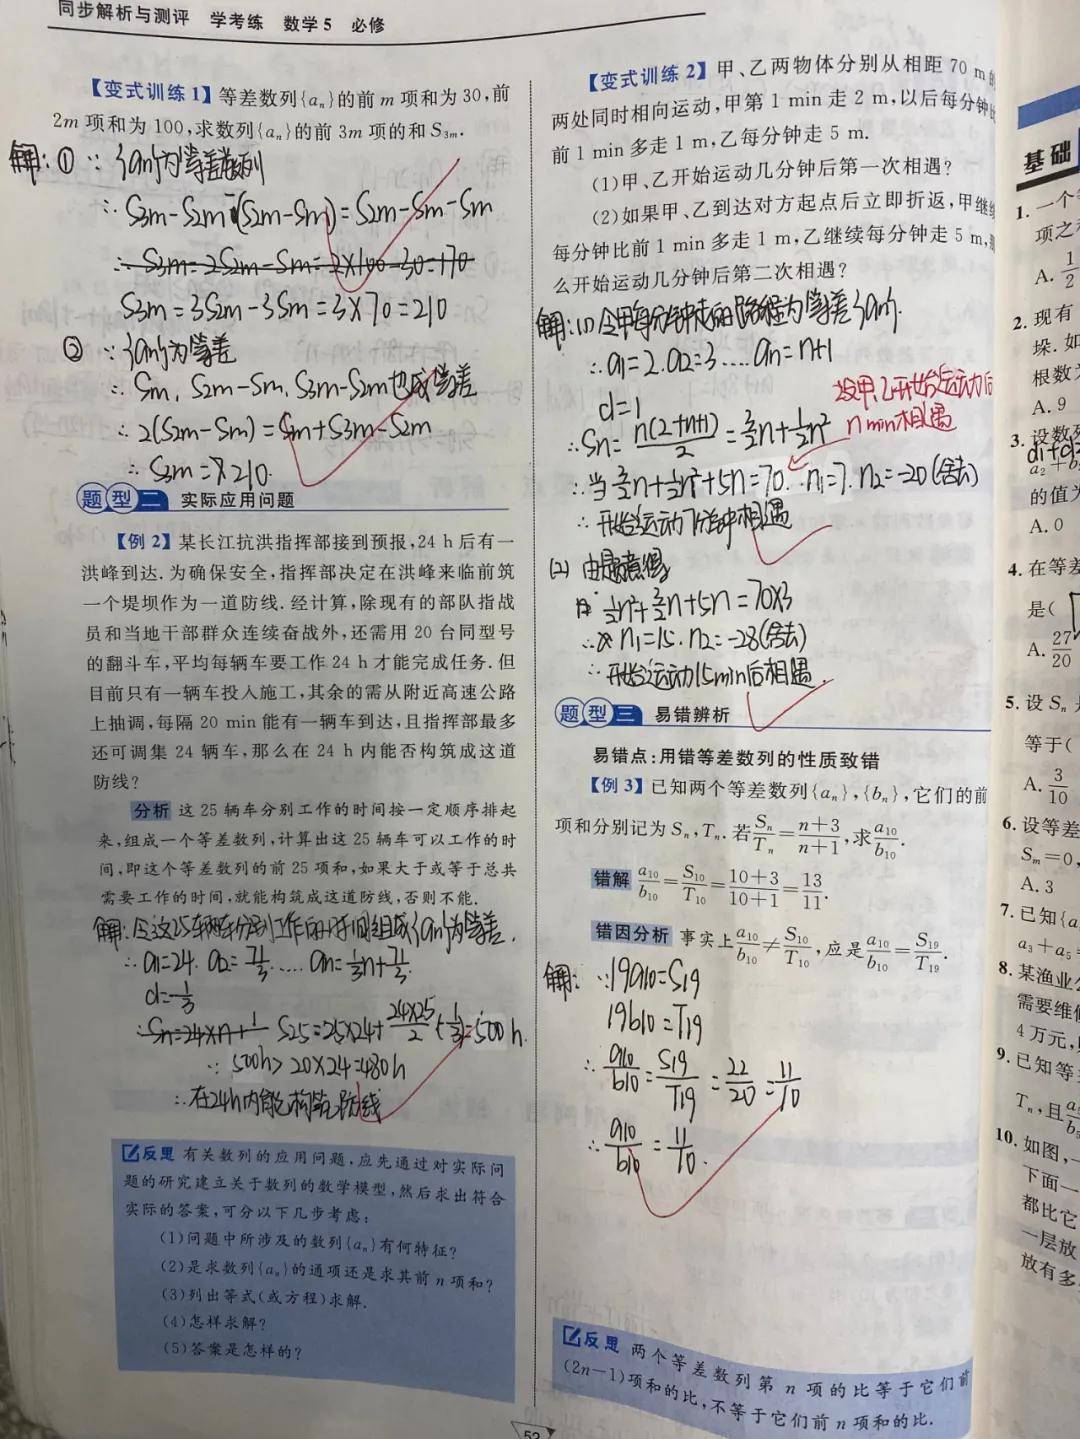 同步解析与测评 学考练 数学5 必修
【变式训练1】等差数列{aₙ}的前 m 项和为30,前
2m 项和为 100,求数列{aₙ}的前 3m 项的和 S₃ₘ.
解:① ∵{an}为等差数列
∴ S3m-S2m-(S2m-Sm)=S2m-Sm-Sm
∴ S3m=2S2m-Sm=2×100-30=170
S3m=3S2m-3Sm=3×70=210
② ∵{an}为等差
∴ Sm, S2m-Sm, S3m-S2m也成等差
∴ 2(S2m-Sm)=Sm+S3m-S2m
∴ S3m=210.
题型二 实际应用问题
【例2】某长江抗洪指挥部接到预报,24 h后有一
洪峰到达.为确保安全,指挥部决定在洪峰来临前筑
一个堤坝作为一道防线.经计算,除现有的部队指战
员和当地干部群众连续奋战外,还需用 20 台同型号
的翻斗车,平均每辆车要工作 24 h 才能完成任务.但
目前只有一辆车投入施工,其余的需从附近高速公路
上抽调,每隔 20 min 能有一辆车到达,且指挥部最多
还可调集 24 辆车,那么在 24 h 内能否构筑成这道
防线?
分析 这 25 辆车分别工作的时间按一定顺序排起
来,组成一个等差数列,计算出这 25 辆车可以工作的时
间,即这个等差数列的前 25 项和,如果大于或等于总共
需要工作的时间,就能构筑成这道防线,否则不能.
解:令这25辆车分别工作的时间组成{an}为等差.
∴ a1=24. a2=71/3. …. an=-1/3n+73/3
d=-1/3
∴ Sn=24×n+ S25=25×24+24×25/2×(-1/3)=500h.
∵ 500h>20×24=480h
∴ 在24h内能构筑防线
反思 有关数列的应用问题,应先通过对实际问
题的研究建立关于数列的数学模型,然后求出符合
实际的答案,可分以下几步考虑:
(1)问题中所涉及的数列{aₙ}有何特征?
(2)是求数列{aₙ}的通项还是求其前 n 项和?
(3)列出等式(或方程)求解.
(4)怎样求解?
(5)答案是怎样的?
【变式训练2】甲、乙两物体分别从相距 70 m的
两处同时相向运动,甲第 1 min 走 2 m,以后每分钟比
前 1 min 多走 1 m,乙每分钟走 5 m.
(1)甲、乙开始运动几分钟后第一次相遇?
(2)如果甲、乙到达对方起点后立即折返,甲继续
每分钟比前 1 min 多走 1 m,乙继续每分钟走 5 m,那
么开始运动几分钟后第二次相遇?
解:(1)令甲每分钟走的路程为等差{an}.
∴ a1=2. a2=3….an=n+1
d=1
设甲、乙开始运动后
n min相遇
∴ Sn=n(2+n+1)/2=3/2n+1/2n²
∴ 当3/2n+1/2n²+5n=70. ∴n1=7. n2=-20(舍去)
∴ 开始运动7分钟相遇
(2) 由题意得
1/2n²+3/2n+5n=70×3
∴ n1=15. n2=-28(舍去)
∴ 开始运动15min后相遇.
题型三 易错辨析
易错点:用错等差数列的性质致错
【例3】已知两个等差数列{aₙ},{bₙ},它们的前
项和分别记为 Sₙ,Tₙ.若Sₙ/Tₙ=n+3/n+1,求a₁₀/b₁₀.
错解 a₁₀/b₁₀=S₁₀/T₁₀=10+3/10+1=13/11.
错因分析 事实上a₁₀/b₁₀≠S₁₀/T₁₀,应是a₁₀/b₁₀=S₁₉/T₁₉.
解: ∵19a10=S19
19b10=T19
∴ a10/b10=S19/T19=22/20=11/10
∴ a10/b10=11/10.
反思 两个等差数列第 n 项的比等于它们前
(2n-1)项和的比,不等于它们前 n 项和的比.
52
基础
1. 一个
项之
A. 1/2
2. 现有
垛.如
根数
A. 9
3. 设数列
a₂+b
的值为
A. 0
4. 在等差
是(
A. 27/20
5. 设 Sₙ
等于(
A. 3/10
6. 设等差
Sₘ=0,
A. 3
7. 已知{a
a₃+a₅
8. 某渔业公
需要维修
4 万元,
9. 已知等
Tₙ,且
10. 如图,一
下面一
都比它
一层放
放有多